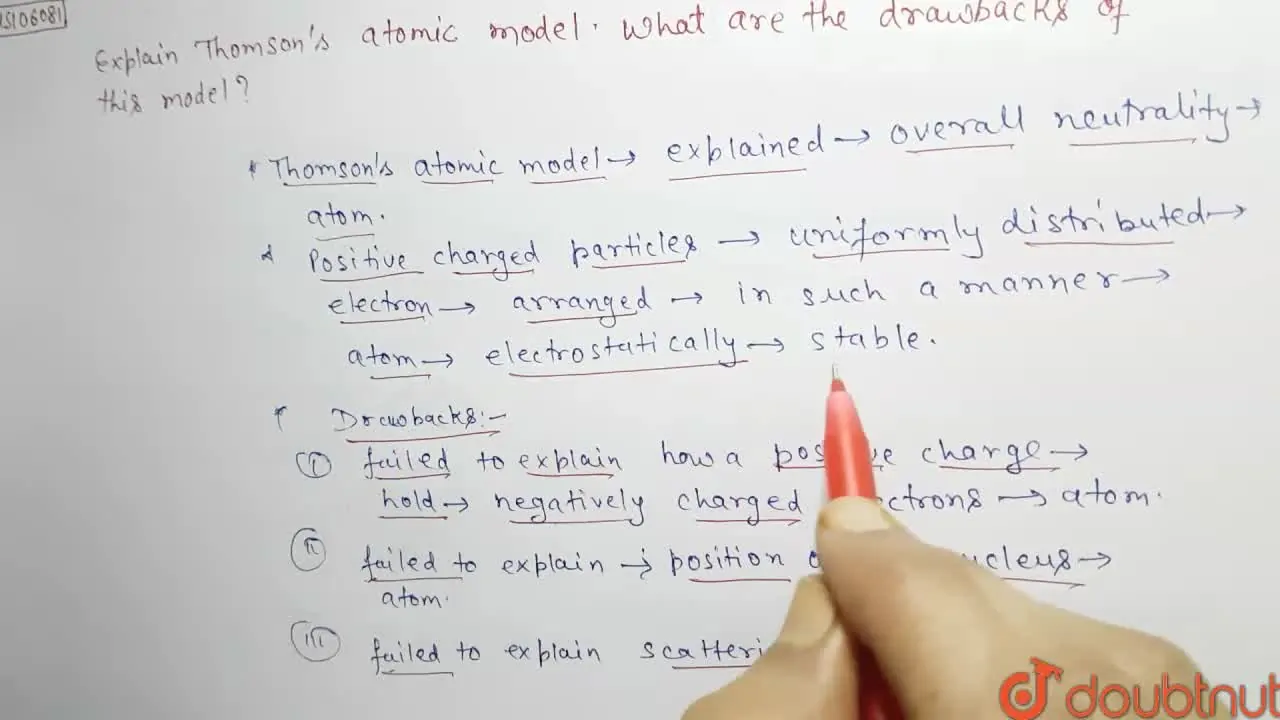 Explain Thomson's atomic model. What are the drawbacks of
this model?
* Thomson's atomic model → explained → overall neutrality →
atom.
* Positive charged particles → uniformly distributed →
electron → arranged → in such a manner →
atom → electrostatically → stable.
* Drawbacks:-
(i) failed to explain how a charge →
hold → negatively charged → atom.
(ii) failed to explain → position →
atom.
(iii) failed to explain
doubtnut